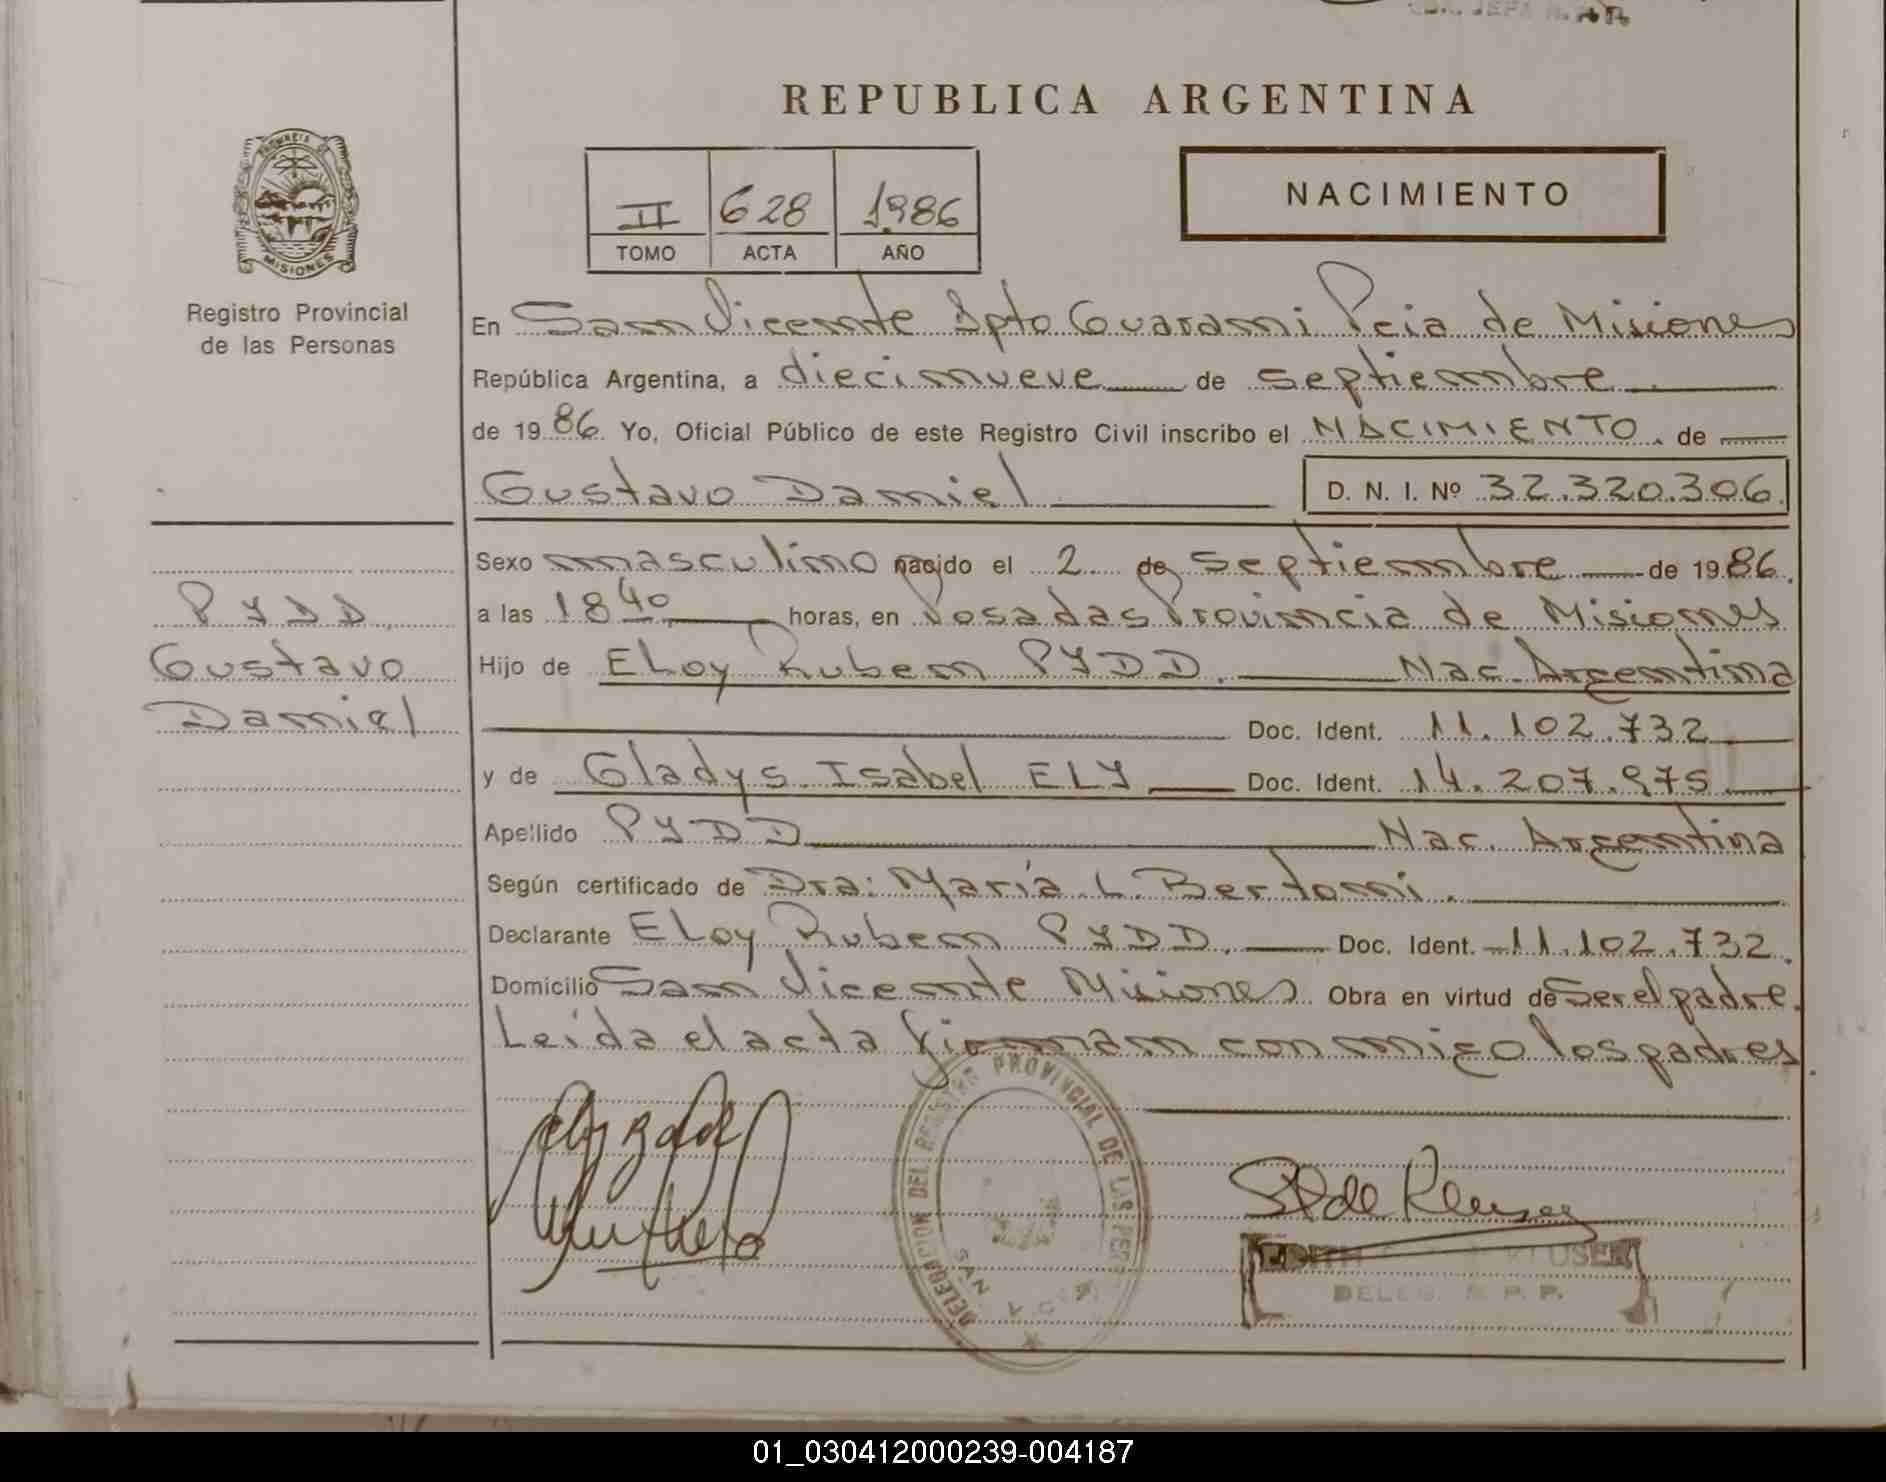 REPUBLICA ARGENTINA
PROVINCIA DE
MISIONES
Registro Provincial
de las Personas
II 628 1986
TOMO ACTA AÑO
NACIMIENTO
En San Vicente Dpto Guarani Pcia de Misiones
República Argentina, a diecinueve de septiembre
de 1986. Yo, Oficial Público de este Registro Civil inscribo el NACIMIENTO. de
Gustavo Daniel D. N. I. Nº 32.320.306
Sexo masculino nacido el 2 de Septiembre de 1986.
a las 18 40 horas, en Posadas Provincia de Misiones
Hijo de ELoy Ruben PYDD. Nac. Argentina
Doc. Ident. 11.102.732
y de Gladys Isabel ELY Doc. Ident. 14.207.975
Apellido PYDD Nac. Argentina
Según certificado de Dra: María L. Bertoni.
Declarante ELoy Ruben PYDD. Doc. Ident. 11.102.732.
Domicilio San Vicente Misiones. Obra en virtud de Ser el padre.
Leída el acta firman conmigo los padres.
PYDD.
Gustavo
Daniel
DELEGACION DEL REGISTRO PROVINCIAL DE LAS PER
SAN VIC
EDITH KLUSER
DELEG. R. P. P.
01_030412000239-004187